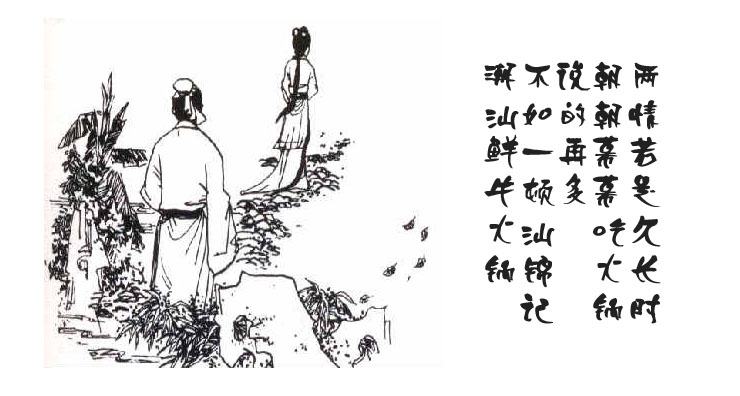 两情若是久长时
朝朝暮暮吃火锅
说的再多
不如一顿汕锦记
潮汕鲜牛火锅